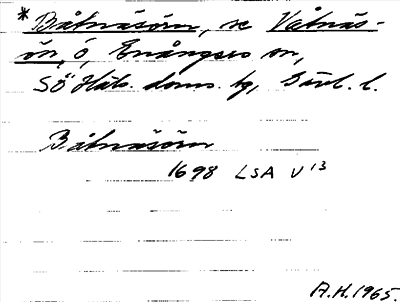 * Båtnäsörn, se Våtnäs-
ön, ö, Enångers sn,
SÖ Häls. doms. tg, Gävl. l.
Båtnäsörn
1698 LSA V 13
A.H. 1965.